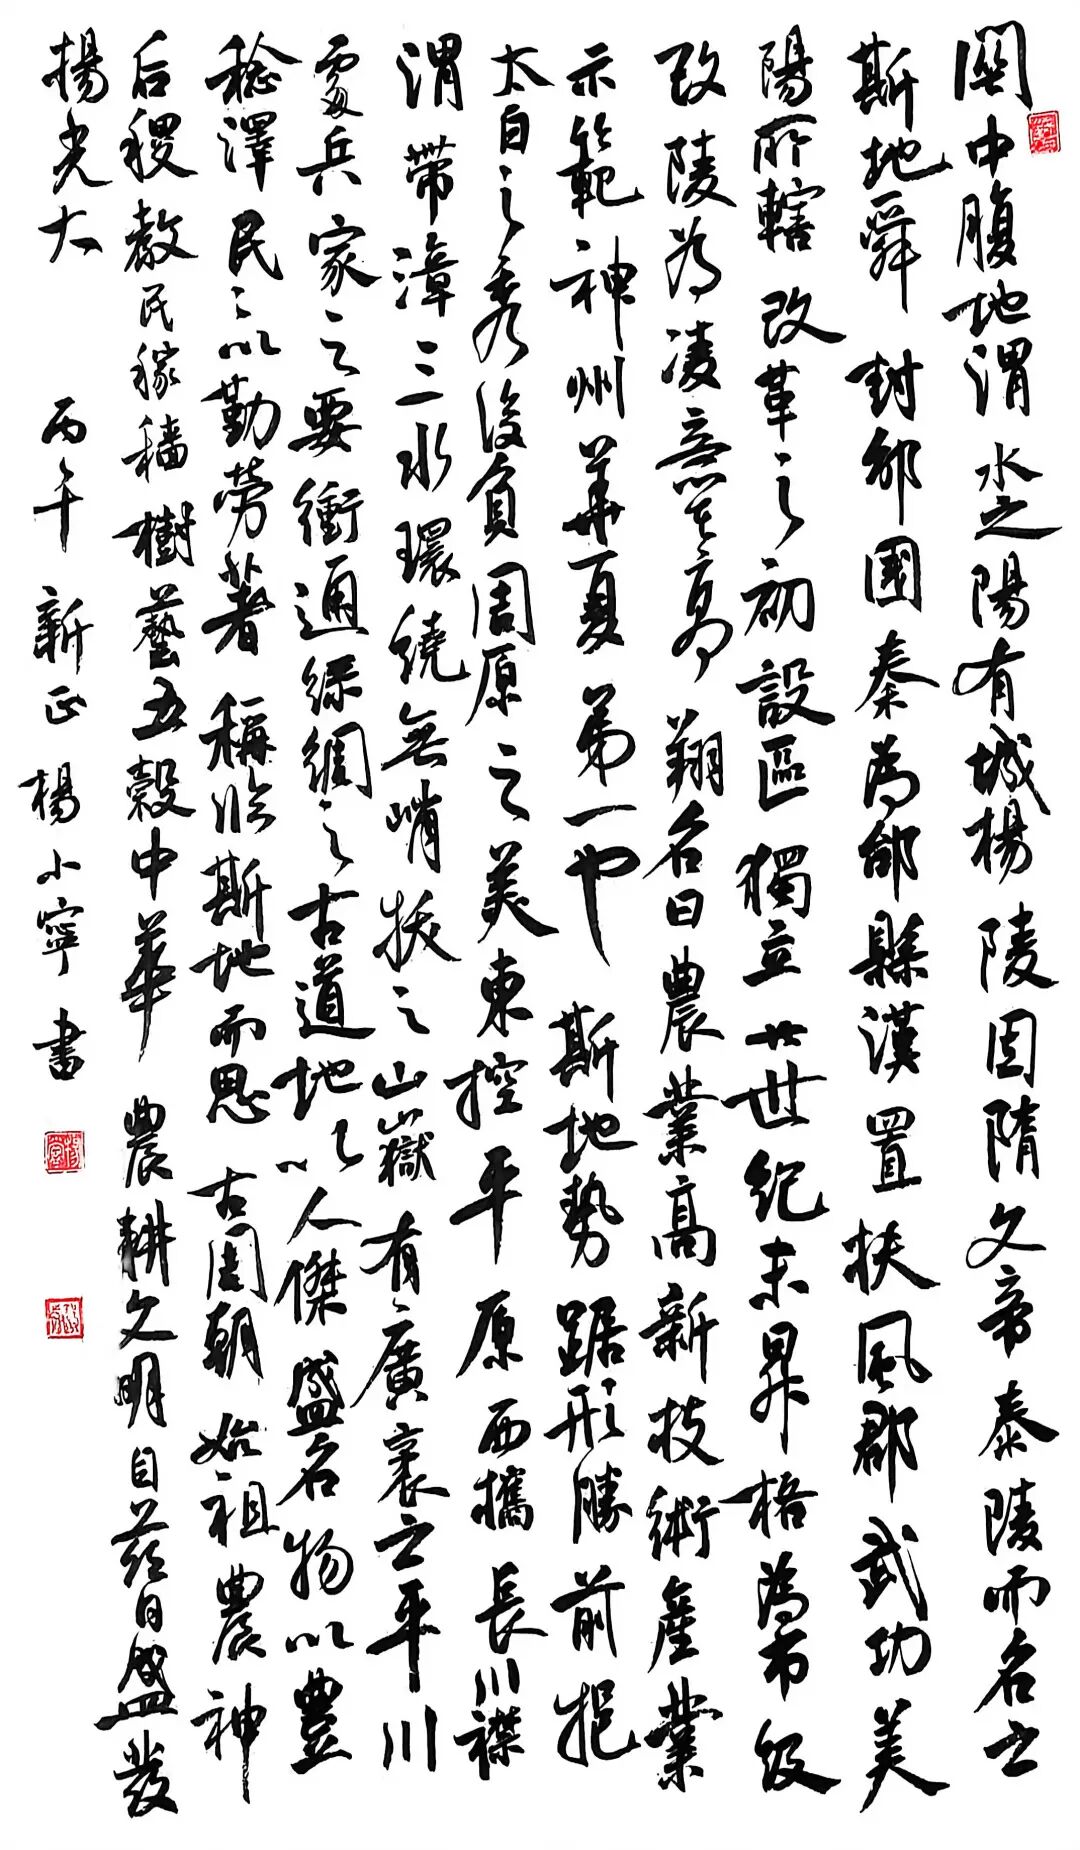 關中腹地渭水之陽有城楊陵因隋文帝泰陵而名之
斯地舜封邰國秦為邰縣漢置扶風郡武功美
陽所轄改革之初設區獨立廿世紀末昇格為市級
改陵為凌意至高翔名曰農業高新技術產業
示範神州華夏第一也斯地勢踞形勝前挹
太白之秀後負周原之美東控平原西攜長川襟
渭帶漳三水環繞無峭拔之山嶽有廣袤之平川
處兵家之要衝通絲綢之古道地以人傑盛名物以豐
稔澤民民以勤勞著稱臨斯地而思古周朝始祖農神
后稷教民稼穡樹藝五穀中華農耕文明自茲日盛發
揚光大
丙午新正楊小寧書